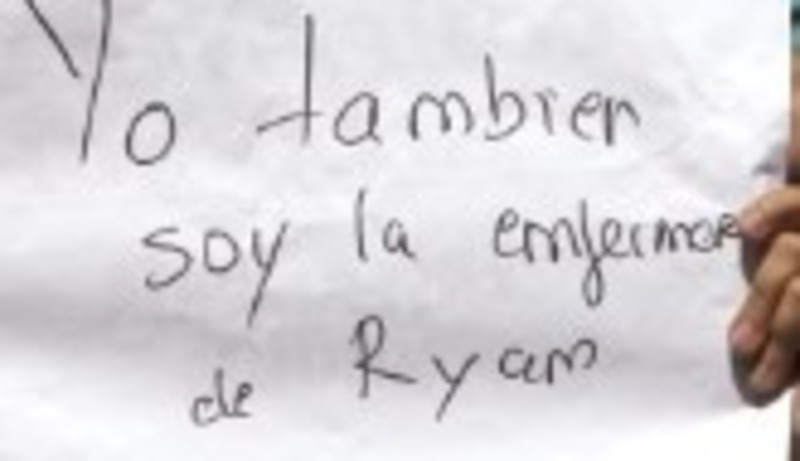 Yo tambien
soy la enfermer
de Ryan